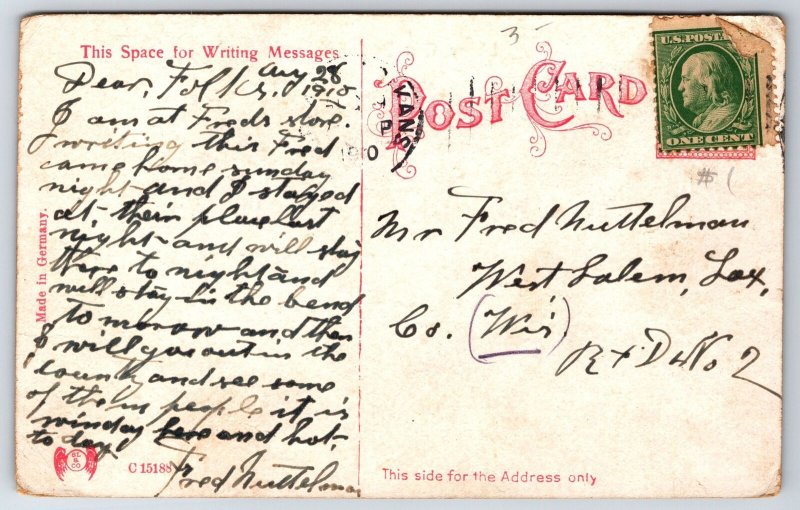 This Space for Writing Messages
Aug 28
Dear, Folks, 1910
I am at Freds store.
writing this Fred
came home sunday
night and I stayed
at their place last
night and will stay
there to night and
will stay in the bend
to morow and then
I will go out in the
county and see some
of them people it is
winday here and hot
to day
Fred Nuttelman
Made in Germany.
SL & CO
C 15188
3-
POST CARD
VANS
1910
P
U.S. POSTAGE
ONE CENT
#1
Mr Fred Nuttelman
West Salem, Lax,
Co. (Wis)
R + D No 2
This side for the Address only